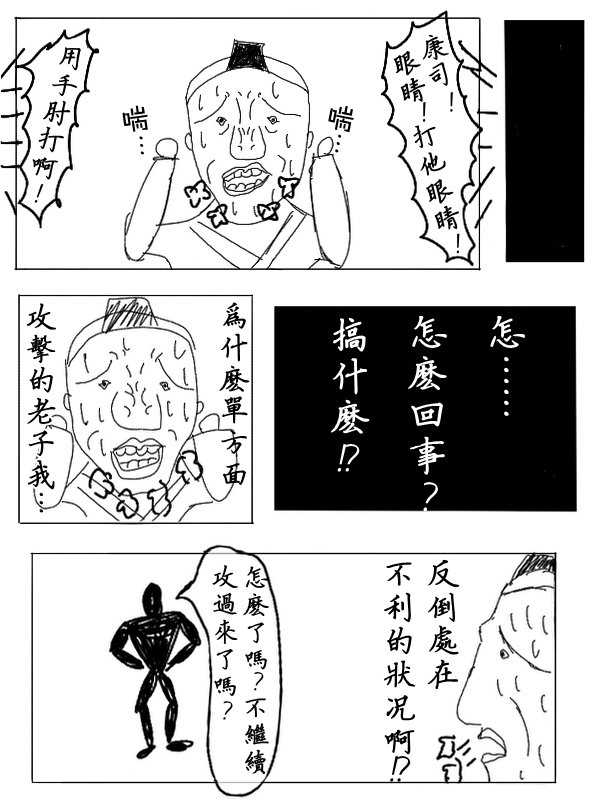 康司！
眼睛！打他眼睛！
喘…
喘…
用手肘打啊！
怎……
怎麼回事？
搞什麼!?
為什麼單方面
攻擊的老子我…
反倒處在
不利的狀況啊!?
怎麼了嗎？不繼續
攻過來了嗎？